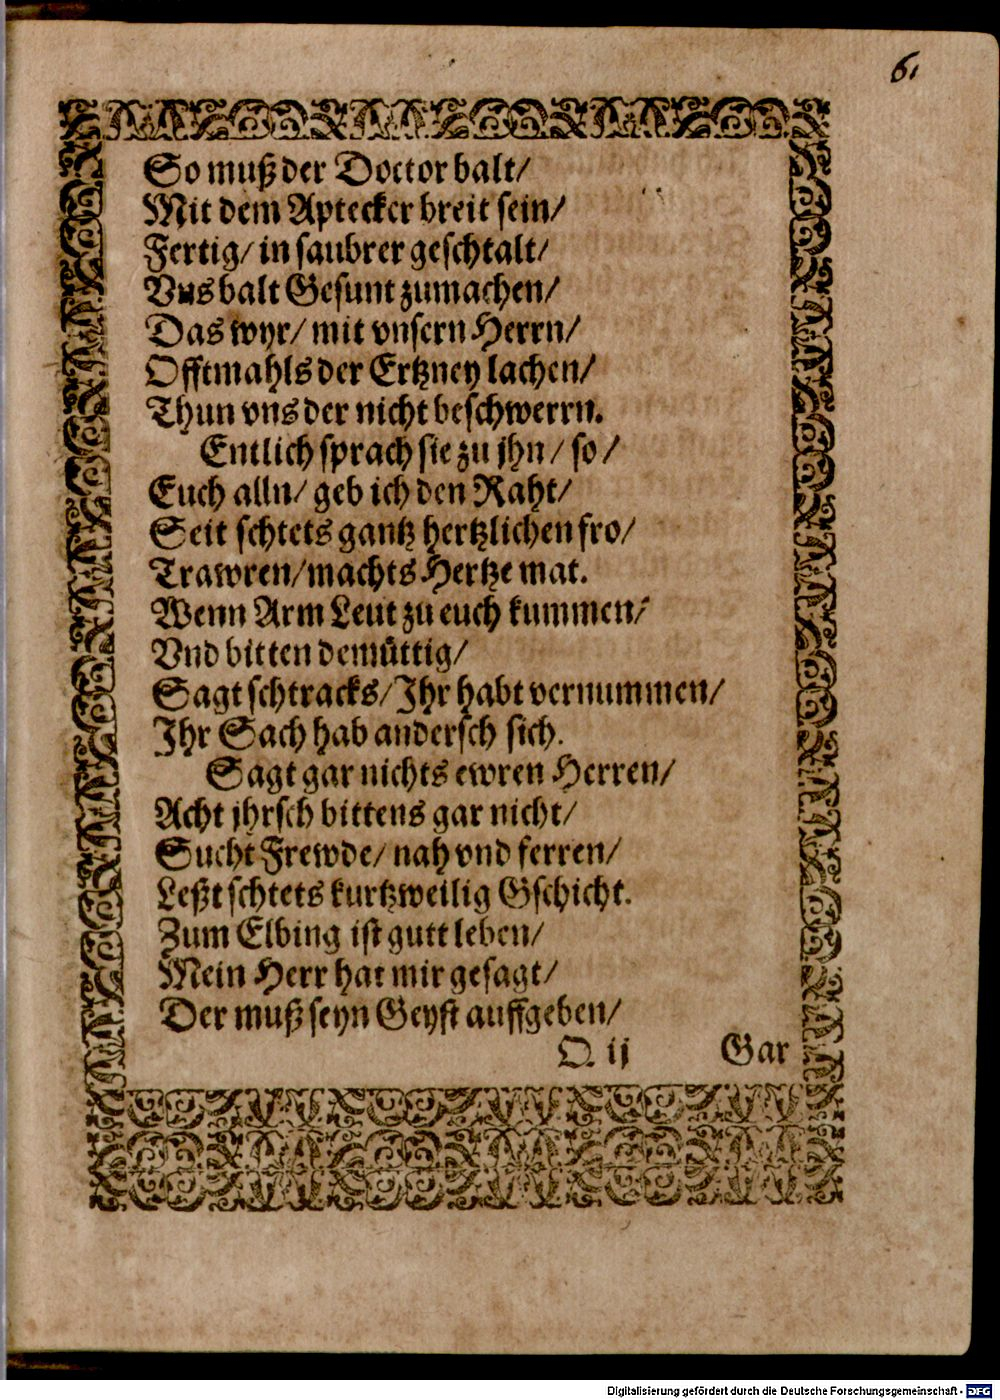 6.
So muß der Doctor balt/
Mit dem Aptecker breit sein/
Fertig/ in saubrer geschtalt/
Vns balt Gesunt zumachen/
Das wyr/ mit vnsern Herrn/
Offtmahls der Ertzney lachen/
Thun vns der nicht beschwerrn.
Entlich sprach sie zu jhn/ so/
Euch alln/ geb ich den Raht/
Seit schtets gantz hertzlichen fro/
Trawren/machts Hertze mat.
Wenn Arm Leut zu euch kummen/
Vnd bitten demüttig/
Sagt schtracks/Ihr habt vernummen/
Ihr Sach hab andersch sich.
Sagt gar nichts ewren Herren/
Acht jhrsch bittens gar nicht/
Sucht Frewde/ nah vnd ferren/
Leßt schtets kurtzweilig Gschicht.
Zum Elbing ist gutt leben/
Mein Herr hat mir gesagt/
Der muß seyn Geyst auffgeben/
O ij Gar
Digitalisierung gefördert durch die Deutsche Forschungsgemeinschaft - DFG